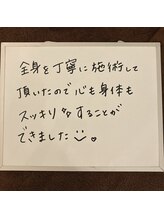 全身を丁寧に施術して
頂いたので心も身体も
スッキリすることが
できました